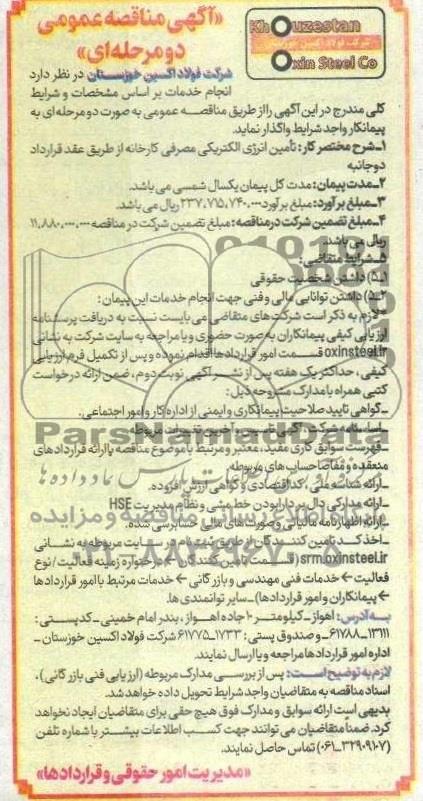 «آگهی مناقصه عمومی
دو مرحله‌ای»
Khouzestan
شرکت فولاد اکسین خوزستان
Oxin Steel Co
شرکت فولاد اکسین خوزستان در نظر دارد
انجام خدمات بر اساس مشخصات و شرایط
کلی مندرج در این آگهی را از طریق مناقصه عمومی به صورت دو مرحله‌ای به
پیمانکار واجد شرایط واگذار نماید.
۱ـ شرح مختصر کار: تأمین انرژی الکتریکی مصرفی کارخانه از طریق عقد قرارداد
دوجانبه
۲ـ مدت پیمان: مدت کل پیمان یکسال شمسی می باشد.
۳ـ مبلغ برآورد: مبلغ برآورد ۲۳۷,۷۱۵,۷۴۰,۰۰۰ ریال می باشد.
۴ـ مبلغ تضمین شرکت در مناقصه: مبلغ تضمین شرکت در مناقصه ۱۱,۸۸۰,۰۰۰,۰۰۰
ریال می باشد.
۵ـ شرایط متقاضی:
۵ـ۱) داشتن شخصیت حقوقی
۵ـ۲) داشتن توانایی مالی و فنی جهت انجام خدمات این پیمان:
ـ لازم به ذکر است شرکت‌های متقاضی می بایست نسبت به دریافت پرسشنامه
ارزیابی کیفی پیمانکاران به صورت حضوری و یا مراجعه به سایت شرکت به نشانی
oxinsteel.ir قسمت امور قراردادها اقدام نموده و پس از تکمیل فرم ارزیابی
کیفی، حداکثر یک هفته پس از نشر آگهی نوبت دوم، ضمن ارائه درخواست
کتبی همراه با مدارک مشروحه ذیل:
ـ گواهی تایید صلاحیت پیمانکاری و ایمنی از اداره کار و امور اجتماعی.
ـ اساسنامه شرکت، آگهی تاسیس و آخرین تغییرات مربوطه
ـ فهرست سوابق کاری مفید، معتبر و مرتبط با موضوع مناقصه با ارائه قراردادهای
منعقده و مفاصاحساب‌های مربوطه.
ـ ارائه شناسه ملی، کد اقتصادی و گواهی ارزش افزوده.
ـ ارائه مدارکی دال بر دارا بودن خط مشی و نظام مدیریت HSE
ـ ارائه اظهارنامه مالیاتی و صورت‌های مالی حسابرسی شده.
ـ اخذ کد تامین کنندگان از طریق ثبت نام در سایت مربوطه به نشانی
srm.oxinsteel.ir (قسمت تامین کنندگان ← درخواره زمینه فعالیت / نوع
فعالیت ← خدمات فنی مهندسی و بازرگانی ← خدمات مرتبط با امور قراردادها
← پیمانکاران و امور قراردادها) ـ سایر توانمندی ها.
به آدرس: اهواز ـ کیلومتر ۱۰ جاده اهواز ـ بندر امام خمینی ـ کدپستی:
۱۳۱۱۱ـ۶۱۷۸۸ و صندوق پستی: ۱۷۳۳ـ۶۱۷۷۵ شرکت فولاد اکسین خوزستان ـ
اداره امور قراردادها مراجعه و یا ارسال نمایند.
لازم به توضیح است: پس از بررسی مدارک مربوطه (ارزیابی فنی بازرگانی)،
اسناد مناقصه به متقاضیان واجد شرایط تحویل داده خواهد شد.
بدیهی است ارائه سوابق و مدارک فوق هیچ حقی برای متقاضیان ایجاد نخواهد
کرد. ضمناً متقاضیان می توانند جهت کسب اطلاعات بیشتر با شماره تلفن
(۳۲۹۰۹۱۰۷ـ۰۶۱) تماس حاصل نمایند.
«مدیریت امور حقوقی و قراردادها»
ParsNamadData
۰۲۱-۸۸۳۴۹۶۷۰-۵